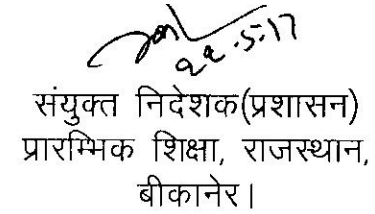 22.5.17
संयुक्त निदेशक(प्रशासन)
प्रारम्भिक शिक्षा, राजस्थान,
बीकानेर।